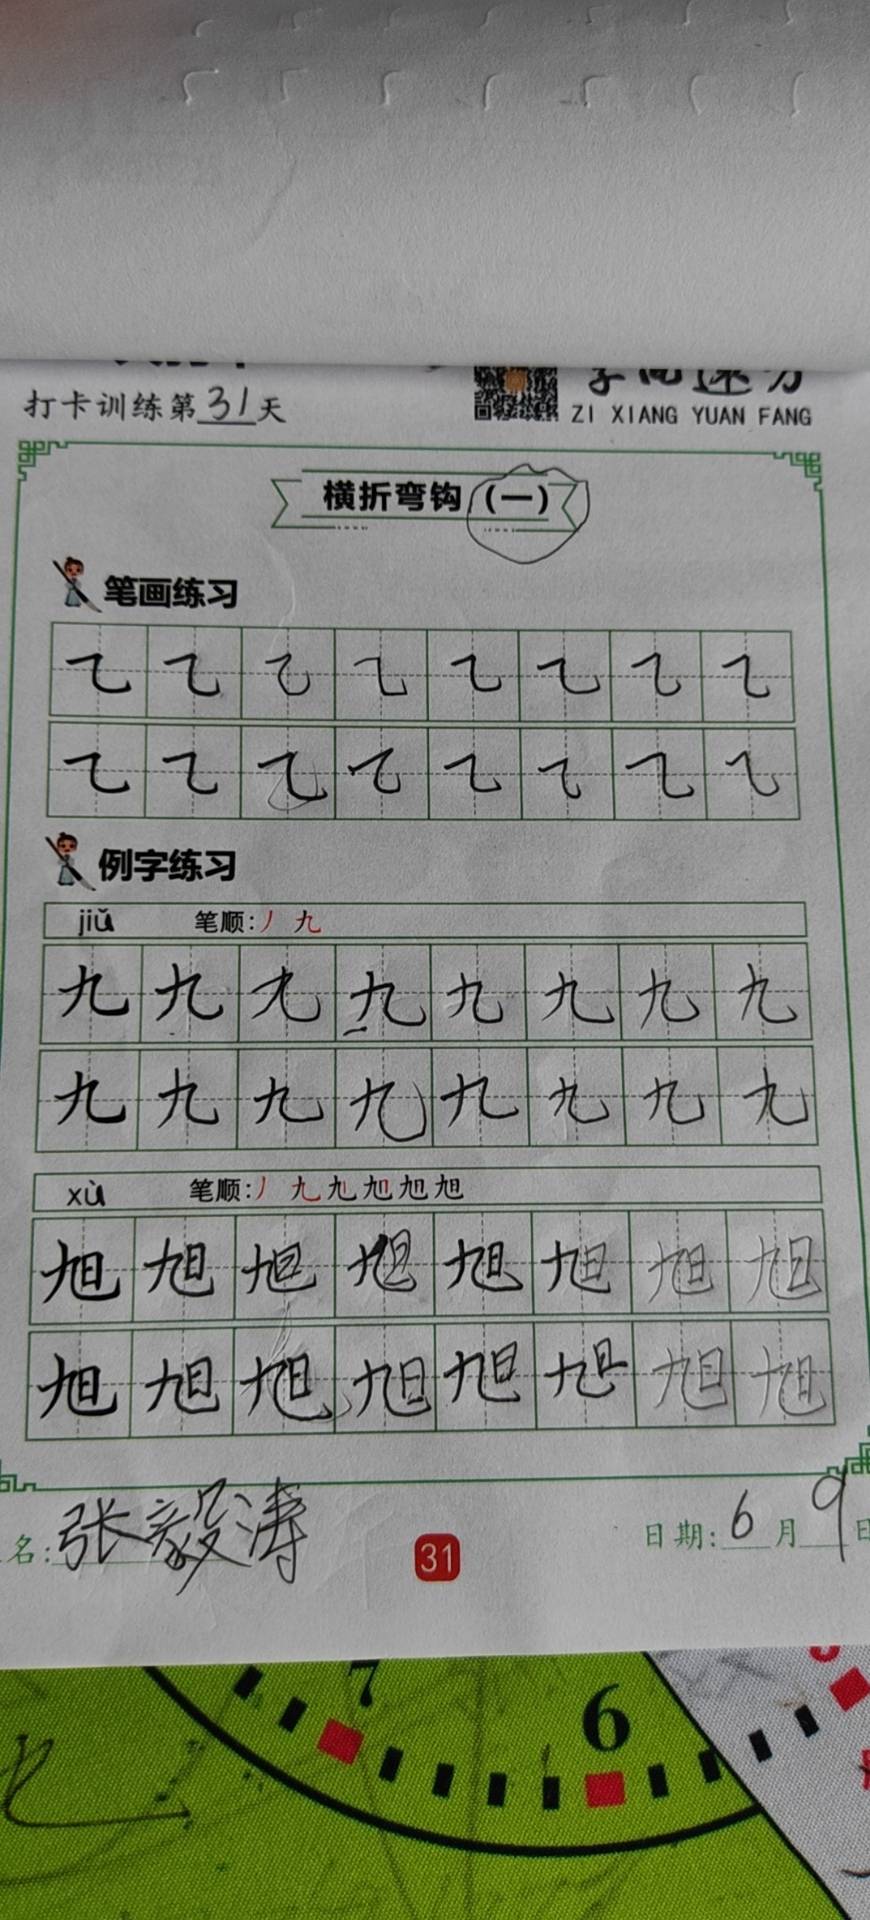 打卡训练第31天
ZI XIANG YUAN FANG
横折弯钩（一）
笔画练习
㇈ ㇈ ㇈ ㇈ ㇈ ㇈ ㇈ ㇈
㇈ ㇈ ㇈ ㇈ ㇈ ㇈ ㇈ ㇈
例字练习
jiǔ 笔顺：丿 九
九 九 九 九 九 九 九 九
九 九 九 九 九 九 九 九
xù 笔顺：丿 九 九 旭 旭 旭
旭 旭 旭 旭 旭 旭 旭 旭
旭 旭 旭 旭 旭 旭 旭 旭
名：张毅涛
31
日期：6月9日
7
6